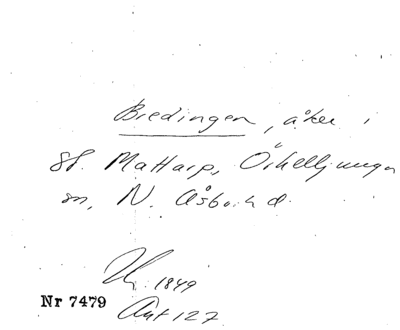 Bredingen, åker i
St. Mattarp, Örkelljunga
sn, N. Åsbo hd.
1849
Nr 7479
Akt 127